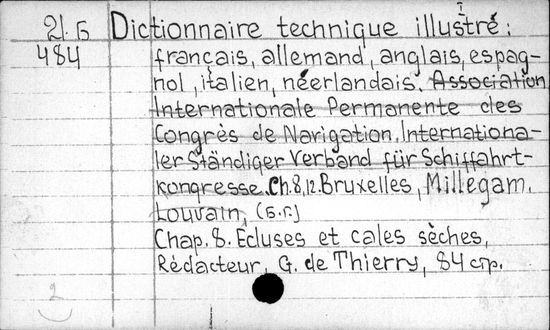 21.Б Dictionnaire technique illustré:
484 français, allemand, anglais, espag-
nol, italien, néerlandais. Association
Internationale Permanente des
Congrès de Navigation. Internationa-
ler Ständiger Verband für Schiffahrt-
kongresse. Ch.8,12. Bruxelles, Millegam.
Louvain, (Б.г.)
Chap. 8. Écluses et cales sèches,
Rédacteur, G. de Thierry, 84 стр.
2